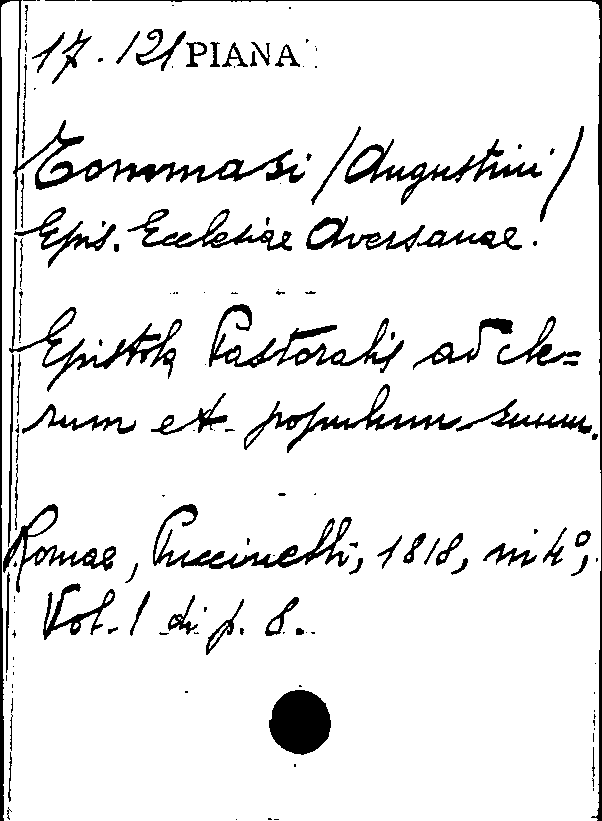 17.121 PIANA
Tommasi (Augustini)
Epis. Ecclesiae Aversanae.
Epistola Pastoralis ad cle=
rum et populum suum.
Romae, Puccinelli, 1818, in 4°,
Vol. 1 di p. 8.